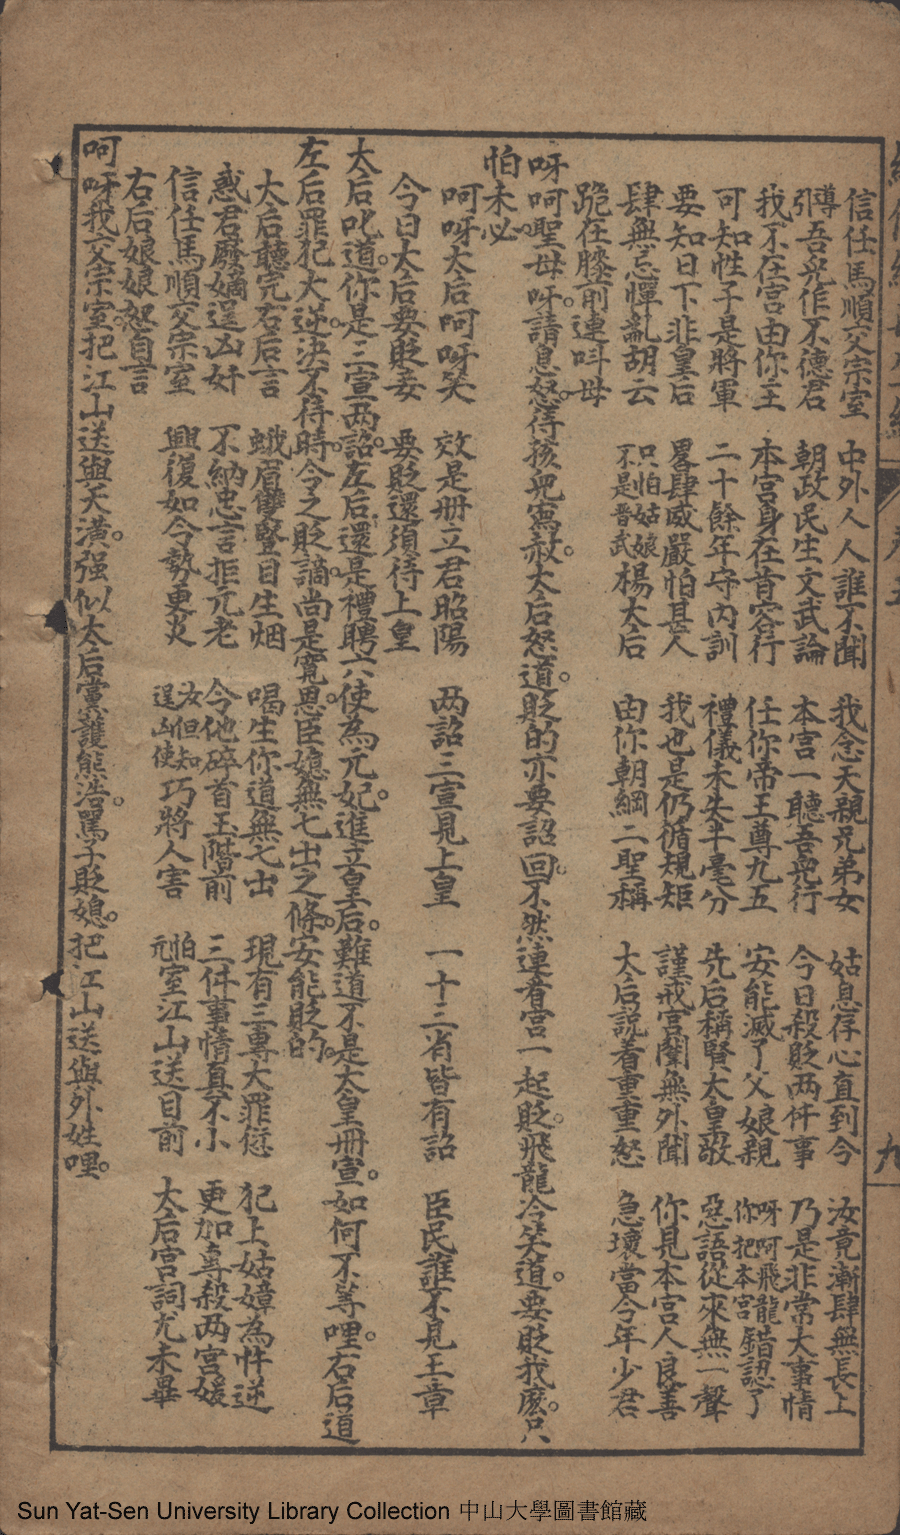 信任馬順父宗室 中外人人誰不聞 我念天親兄弟女 姑息存心直到今 汝竟漸肆無長上
引導吾兒作不德君 朝政民生文武論 本宮一聽吾兒行 今日殺貶两件事 乃是非常大事情
我不在宮由你主 本宮身在肯容行 任你帝王尊九五 安能滅了父娘親 呀呵飛龍你把本宮錯認了
可知性子是將軍 二十餘年守內訓 禮儀未失半毫分 先后稱賢太皇敬 惡語從來無一聲
要知日下非皇后 畧肆威嚴怕甚人 我也是仍循規矩 謹戒宮闈無外聞 你見本宮人良善
肆無忌憚亂胡云 只怕姑娘不是晉武楊太后 由你朝綱二聖稱 太后説着重重怒 急壞當今年少君
跪在膝前連呌母
呀呵聖母呀。請息怒。待孩兒寫赦。太后怒道。貶的亦要詔回。不然連着宮一起貶。飛龍冷笑道。要貶我麽。只
怕未必。
呵呀太后呵呀笑 效是册立君昭陽 两詔三宣見上皇 一十三省皆有詔 臣民誰不見王章
今日太后要貶妾 要貶還須待上皇
太后叱道。你是三宣两詔。左后還是禮聘六使為元妃。進立皇后。難道不是太皇册宣。如何不等哩。右后道
左后罪犯大逆。決不待時。令之貶謫。尚是寬恩。臣媳無七出之條。安能貶的。
太后聽完右后言 蛾眉雙豎目生烟 喝生你道無七出 現有三專大罪愆 犯上姑嫜為忤逆
惑君廢嫡逞凶奸 不納忠言拒元老 今他碎首玉階前 三件事情真不小 更加專殺两宮嬡
信任馬順父宗室 興復如今勢更炎 汝但知逞山使巧將人害 怕元室江山送目前 太后宮詞尤未畢
右后娘娘怒自言
呵呀我父宗室。把江山送與天潢。强似太后黨護熊浩。罵子貶媳。把江山送與外姓哩。
九
Sun Yat-Sen University Library Collection 中山大學圖書館藏